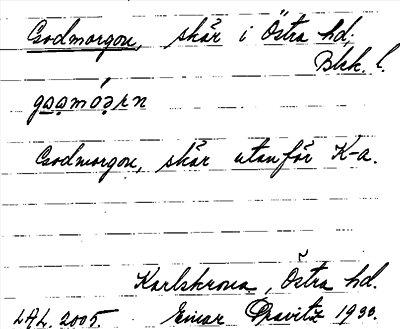 Godmorgon, skär i Östra hd.
Blek. l.
Godmorgon, skär utanför K-a.
Karlskrona, Östra hd.
LAL. 2005. Einar 1930.